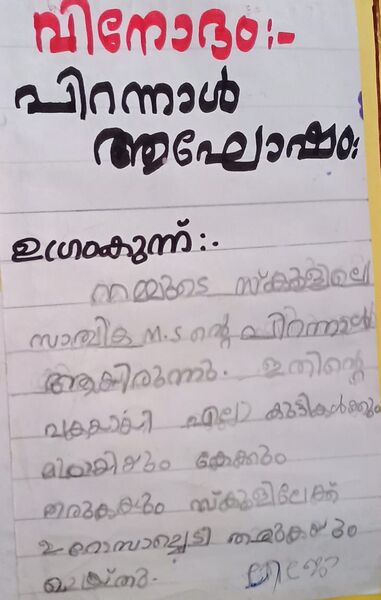 വിനോദം:-
പിറന്നാൾ
ആഘോഷം:
ഉഗ്രംകുന്ന്:-
നമ്മുടെ സ്കൂളിലെ
സാത്വിക M.S ന്റെ പിറന്നാൾ
ആയിരുന്നു. ഇതിന്റെ
വകയായി എല്ലാ കുട്ടികൾക്കും
മിഠായിയും കേക്കും
തരുകയും സ്കൂളിലേക്ക്
ചെയ്തു.